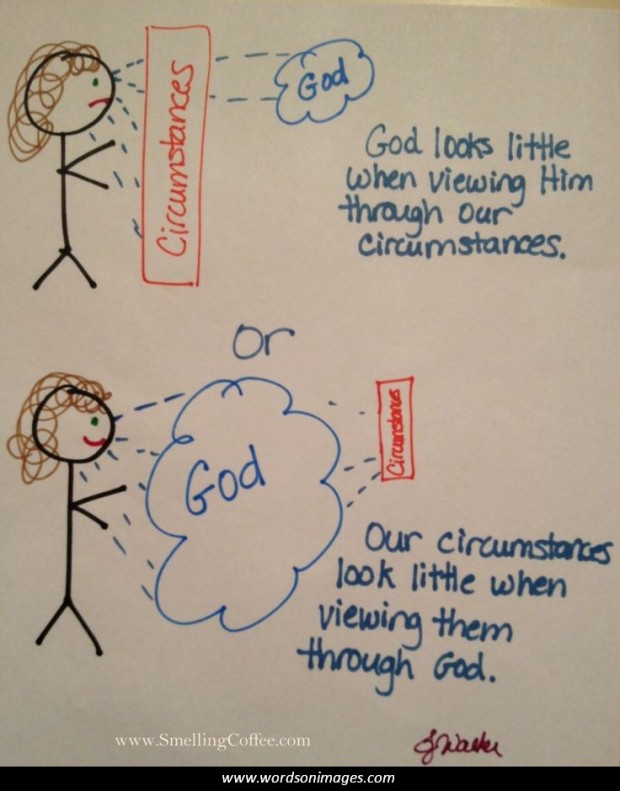 Circumstances
God
God looks little
when viewing Him
through our
circumstances.
or
God
Circumstances
Our circumstances
look little when
viewing them
through God.
www.SmellingCoffee.com
J Walker
www.wordsonimages.com